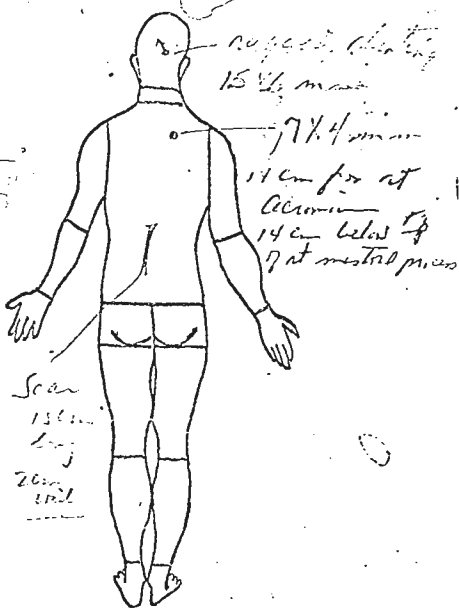 ragged, slanting
15 x 6 mm
7 X 4 mm
14 cm from rt
acromion
14 cm below tip
of rt mastoid process
Scar
15 cm
long
2 cm